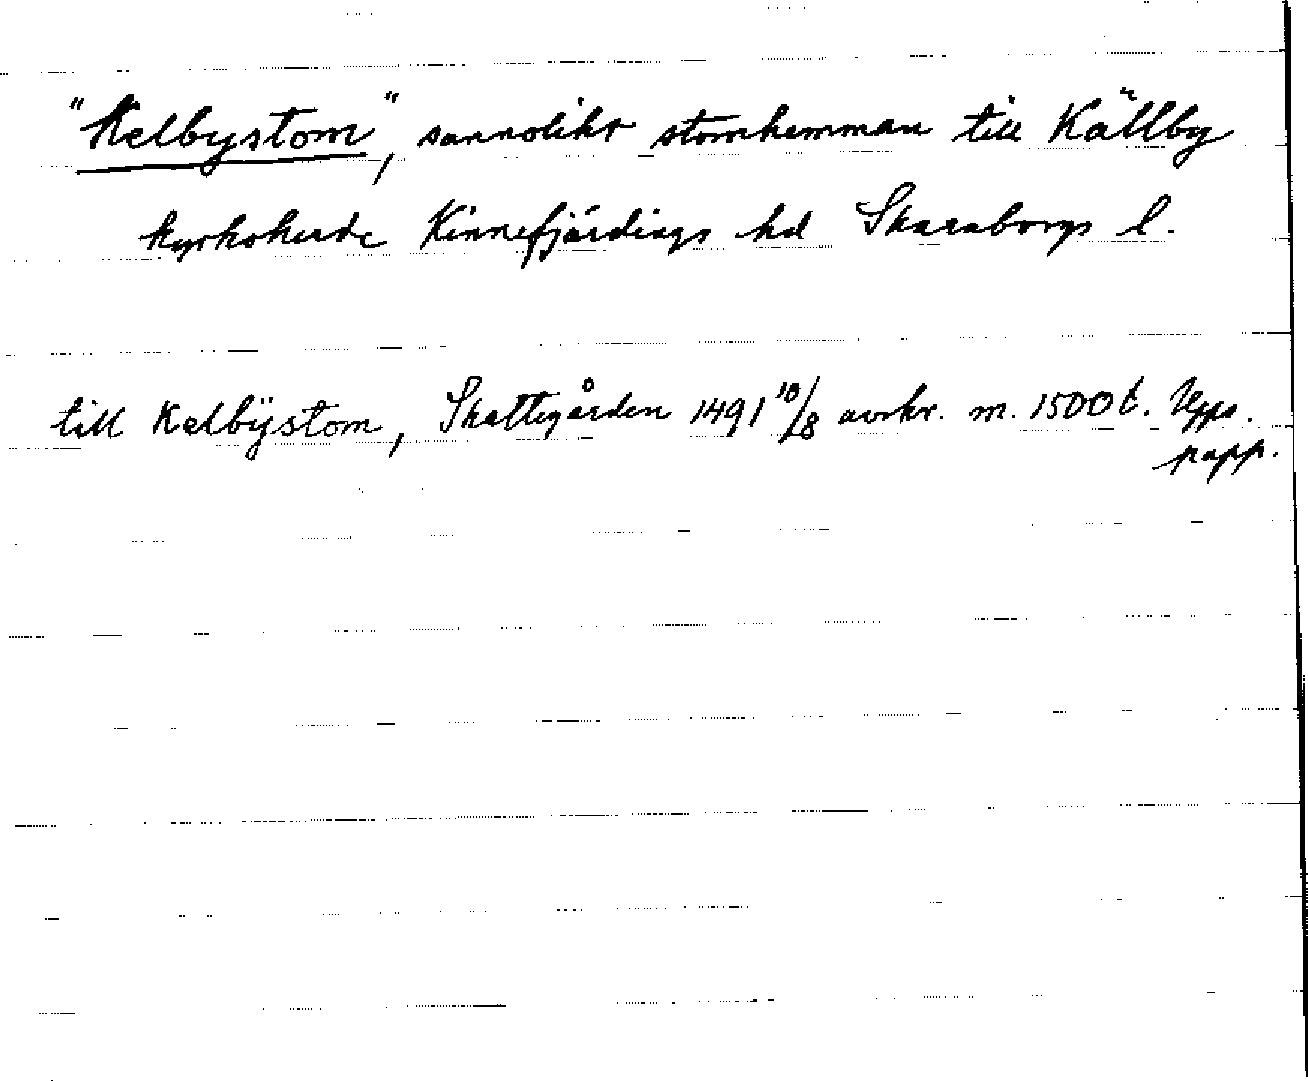 "Kelbystom", sannolikt stomhemman till Källby
kyrkoherde Kinnefjärdings hd Skaraborgs l.
till Kelbÿstom, Skattegården 1491 10/8 avskr. m. 1500 t. Upps.
papp.